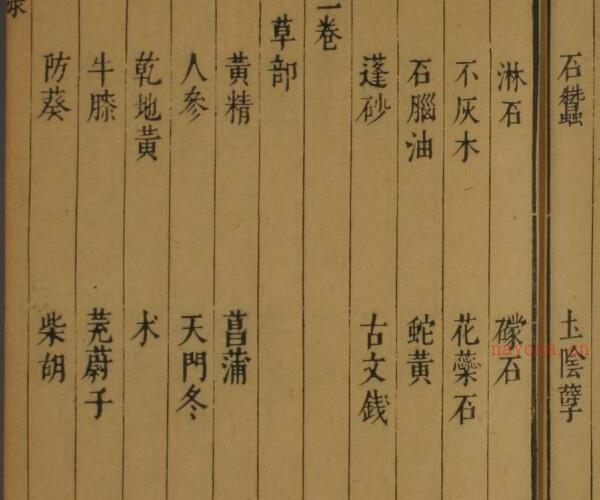 石蠶 土陰孽
淋石 礞石
不灰木 花蘂石
石腦油 蛇黃
蓬砂 古文錢
一卷
草部
黃精 菖蒲
人參 天門冬
乾地黃 术
牛膝 茺蔚子
防葵 柴胡